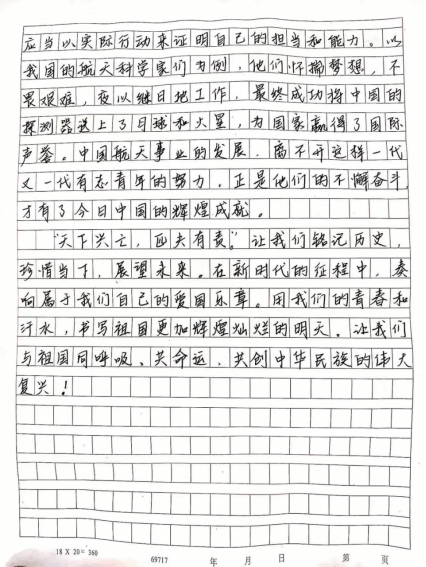 应当以实际行动来证明自己的担当和能力。以
我国的航天科学家们为例，他们怀揣梦想，不
畏艰难，夜以继日地工作，最终成功将中国的
探测器送上了月球和火星，为国家赢得了国际
声誉。中国航天事业的发展，离不开这样一代
又一代有志青年的努力，正是他们的不懈奋斗，
才有了今日中国的辉煌成就。
“天下兴亡，匹夫有责。”让我们铭记历史，
珍惜当下，展望未来。在新时代的征程中，奏
响属于我们自己的爱国乐章。用我们的青春和
汗水，书写祖国更加辉煌灿烂的明天。让我们
与祖国同呼吸、共命运，共创中华民族的伟大
复兴！
18 X 20 = 360 69717 年 月 日 第 页